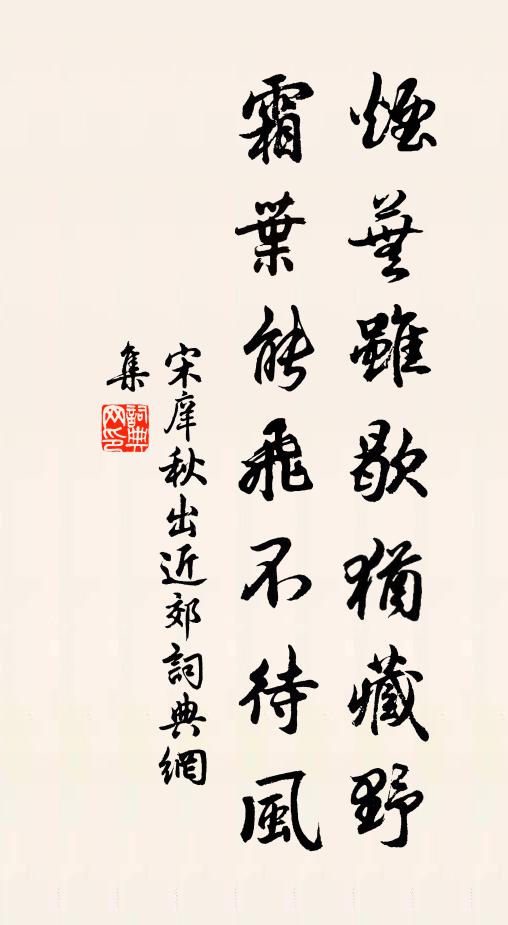 煙蕪雖歇猶藏野
霜葉能飛不待風
宋庠秋出近郊詞典網
集
詞典網印